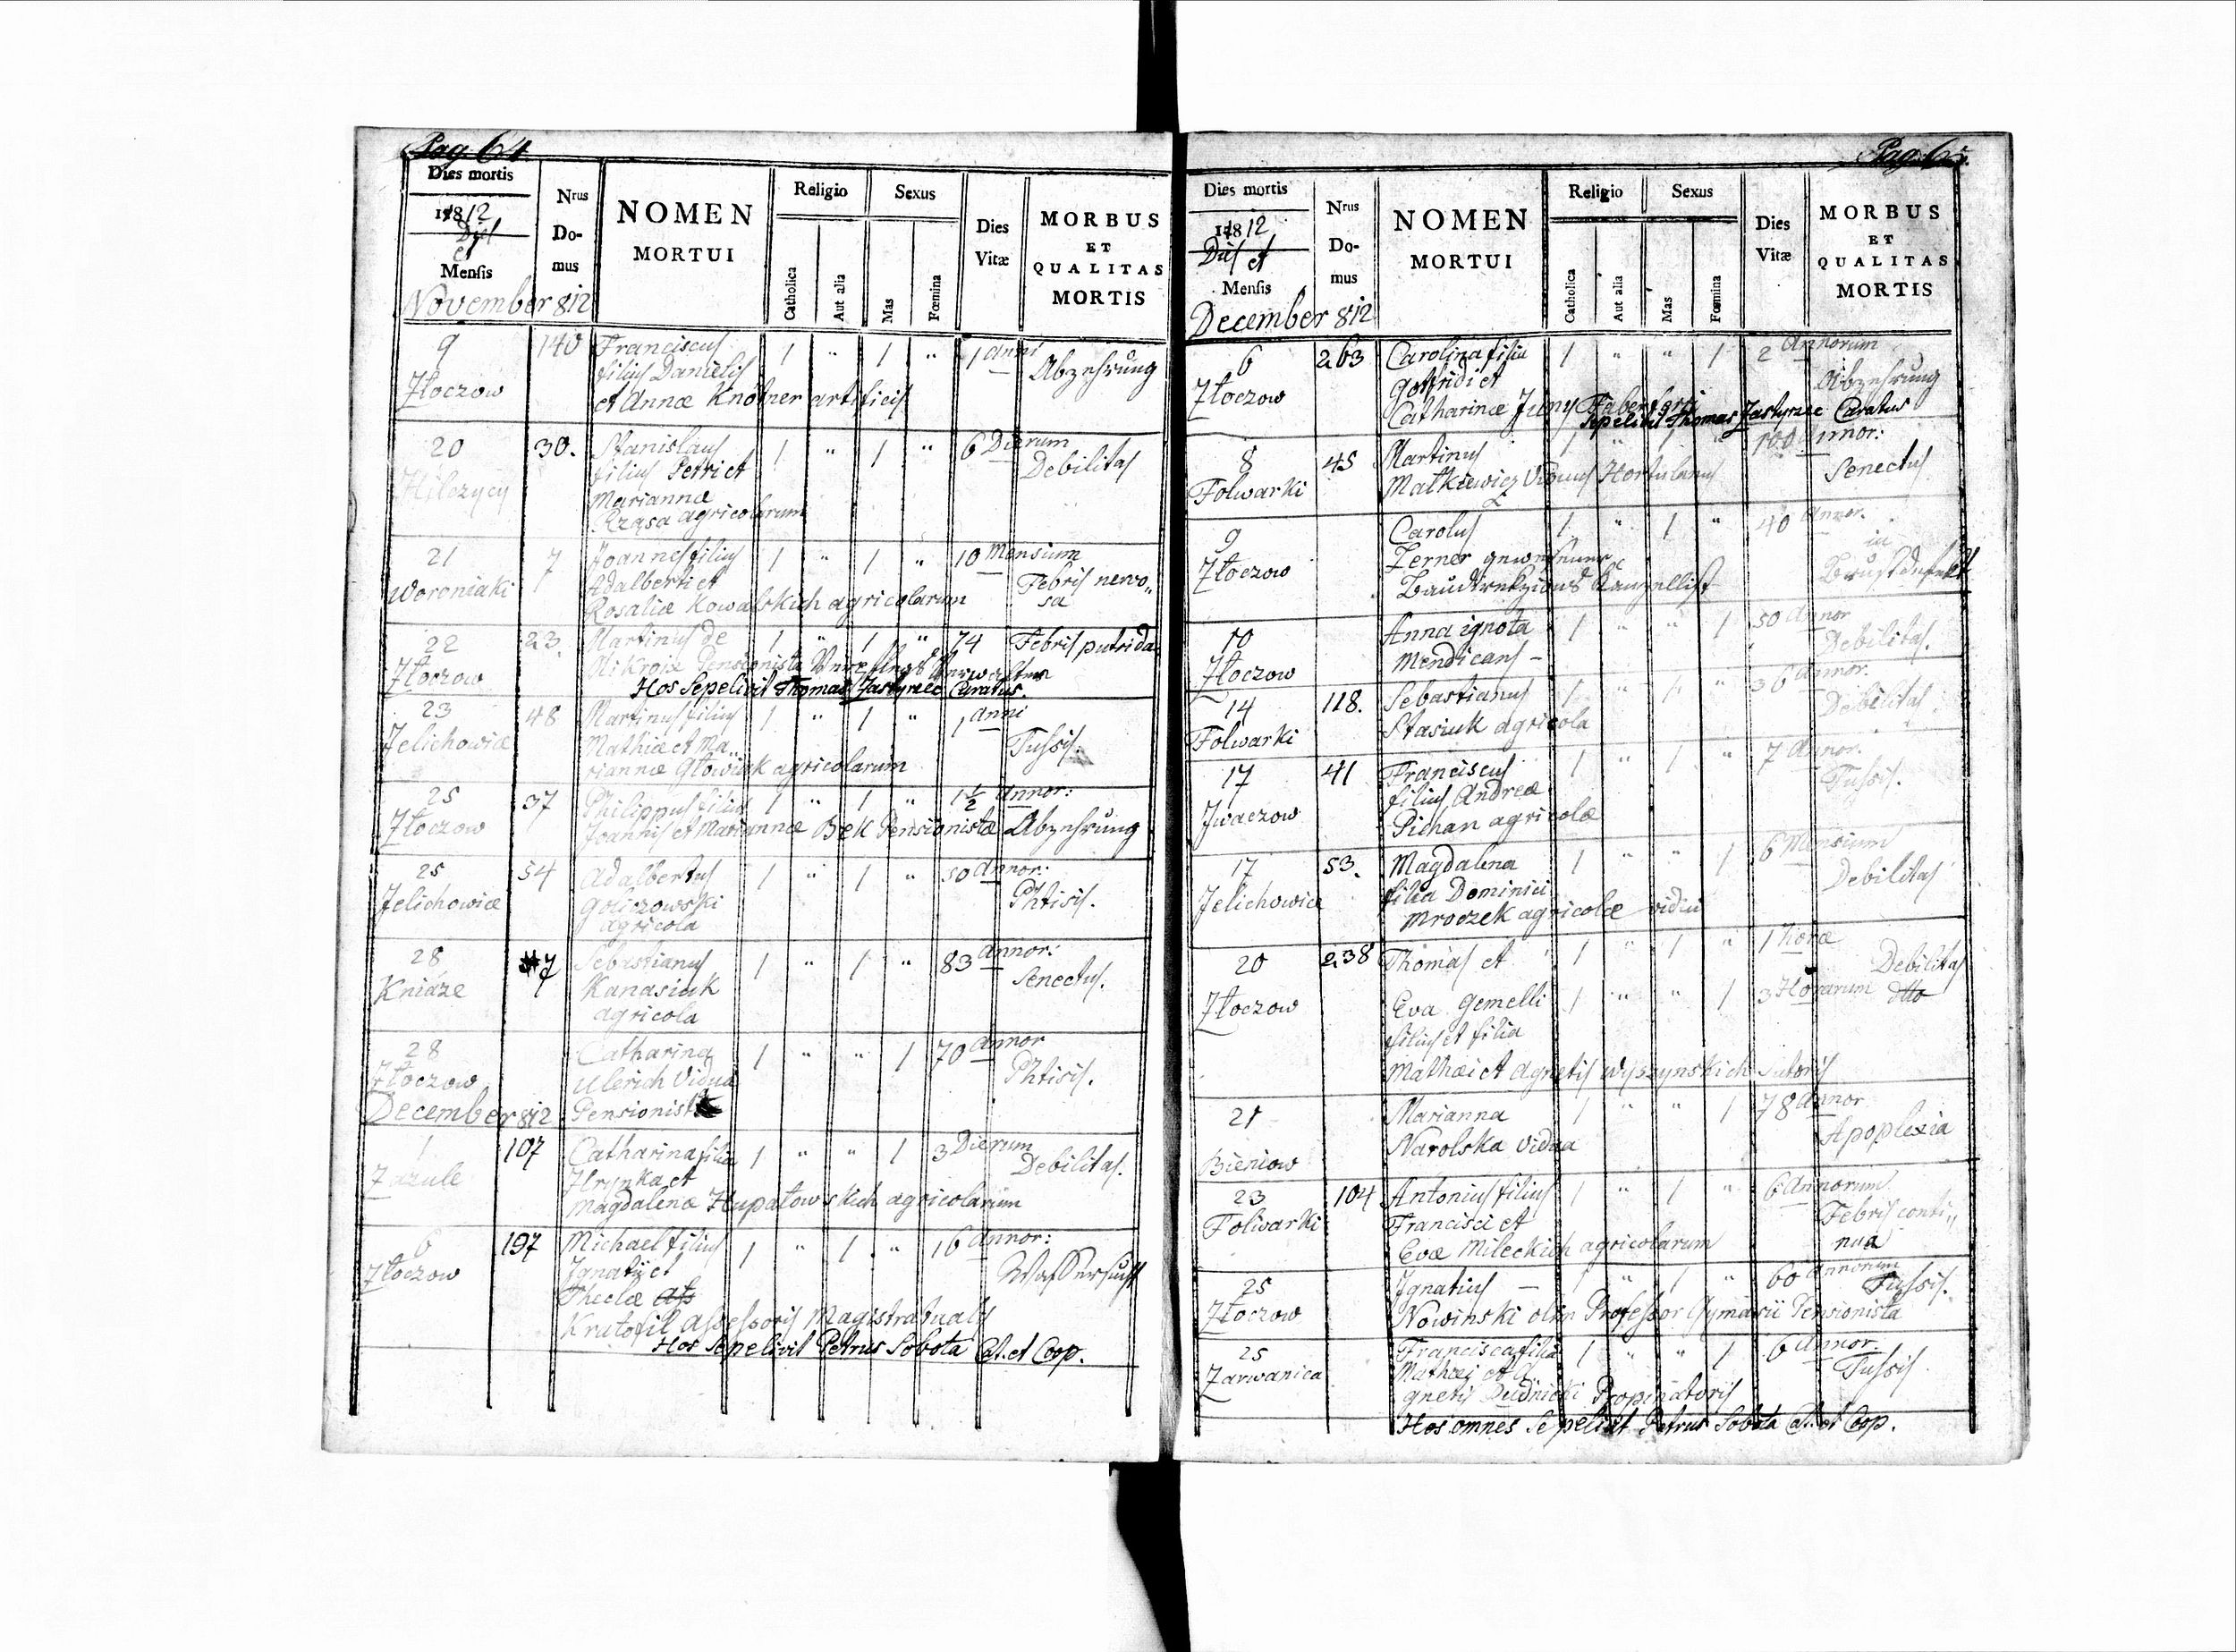 Pag 64
Dies mortis
1812
Diei
et
Mensis
November 812
Nrus
Do-
mus
NOMEN
MORTUI
Religio
Catholica
Aut alia
Sexus
Mas
Fœmina
Dies
Vitæ
MORBUS
ET
QUALITAS
MORTIS
9 140 Franciscus 1 " 1 " 1 anni
filius Danielis Abzehrung
Złoczow et Annæ Knötner artificis
20 30. Stanislaus 1 " 1 " 6 Dierum
filius Petri et Debilitas
Hilczycy Mariannæ
Rząsa agricolarum
21 7 Joannes filius 1 " 1 " 10 Mensium
Woroniaki Adalberti et Febris nervo"
Rosaliæ Kowalskich agricolarum sa
22 23. Martinus de 1 " 1 " 74 Febris putrida
Złoczow Pensionista
Hos Sepelivit Thomas Jastrznec Curatus.
23 48 Martinus filius 1 " 1 " 1 anni
Jelichowice Mathiæ et Ma" Tussis.
riannæ Głowiuk agricolarum
25 37 Philippus filius 1 " 1 " 1½ annor:
Złoczow Joannis et Mariannæ Bek Pensionistæ Abzehrung
25 54 Adalbertus 1 " 1 " 50 annor:
Jelichowice Goliczowski Phtisis.
agricola
28 7 Sebastianus 1 " 1 " 83 annor:
Kniáze Kanasiuk Senectus.
agricola
28 Catharina 1 " " 1 70 annor
Złoczow Ulerich Vidua Phtisis.
December 812 Pensionist
1 107 Catharina filia 1 " " 1 3 Dierum
Zazule Hrynka et Debilitas.
Magdalenæ Hupałowskich agricolarum
6 197 Michael filius 1 " 1 " 16 annor:
Złoczow Ignatii et Wassersucht
Theclæ
Kratofil assessoris Magistratualis
Hos Sepelivit Petrus Sobota Cat. et Coop.
Pag. 65.
Dies mortis
1812
Diei et
Mensis
December 812
Nrus
Do-
mus
NOMEN
MORTUI
Religio
Catholica
Aut alia
Sexus
Mas
Fœmina
Dies
Vitæ
MORBUS
ET
QUALITAS
MORTIS
6 263 Carolina filia 1 " " 1 2 Annorum
Złoczow Gotfridi et Abzehrung
Catharinæ Juny Fabri
Sepelivit Thomas Jastrznec Curatus
8 45 Martinus 1 " 1 " 100 annor:
Folwarki Małkiewicz Viduus Hortulanus Senectus
9 Carolus 1 " 1 " 40 annor.
Złoczow Zerner gewesener
Kanzellist
10 Anna ignota 1 " " 1 50 annor
Złoczow Mendicans – Debilitas.
14 118. Sebastianus 1 " 1 " 36 annor.
Folwarki Stasiuk agricola Debilitas
17 41 Franciscus 1 " 1 " 7 annor.
filius Andreæ Tussis.
Jwaczow Pichan agricolæ
17 53. Magdalena 1 " " 1 6 Mensium
Jelichowice filia Dominici Debilitas
Mroczek agricolæ vidui
20 238 Thomas et 1 " 1 " 1 horæ
Debilitas
Złoczow Eva Gemelli 1 " " 1 3 Horarum dtto
filius et filia
Mathæi et Agnetis Wyszynskich Sutoris
21 Marianna 1 " " 1 78 annor
Bieniow Narolska vidua Apoplexia
23 104 Antonius filius 1 " 1 " 6 Annorum
Folwarki Francisci et Febris conti"
Evæ Mileckich agricolarum nua
25 Ignatius – 1 " 1 " 60 Annorum Tussis.
Złoczow Nowinski olim Professor Gymnasii Pensionista
25 Francisca filia 1 " " 1 6 Annor.
Zarwanica Mathæi et A" Tussis.
gnetis Dudnicki Propinatoris
Hos omnes Sepelivit Petrus Sobota Cat. et Coop.